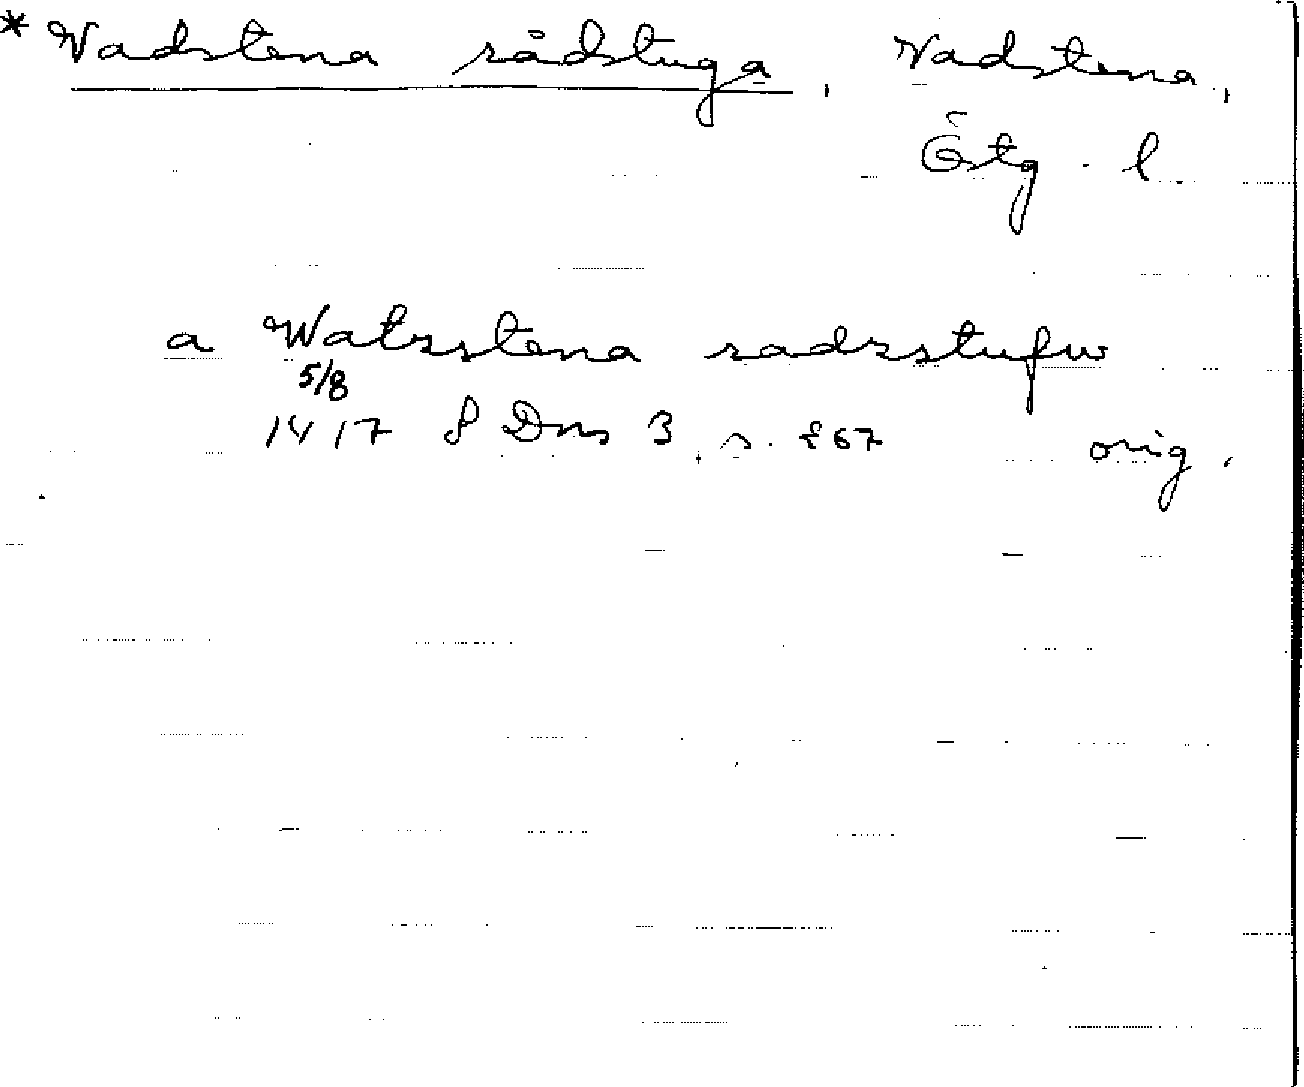 * Vadstena rådstuga, Vadstena,
Östg. l.
a Watzstena radzstufw
5/8
1417 SDns 3, s. 267 orig.